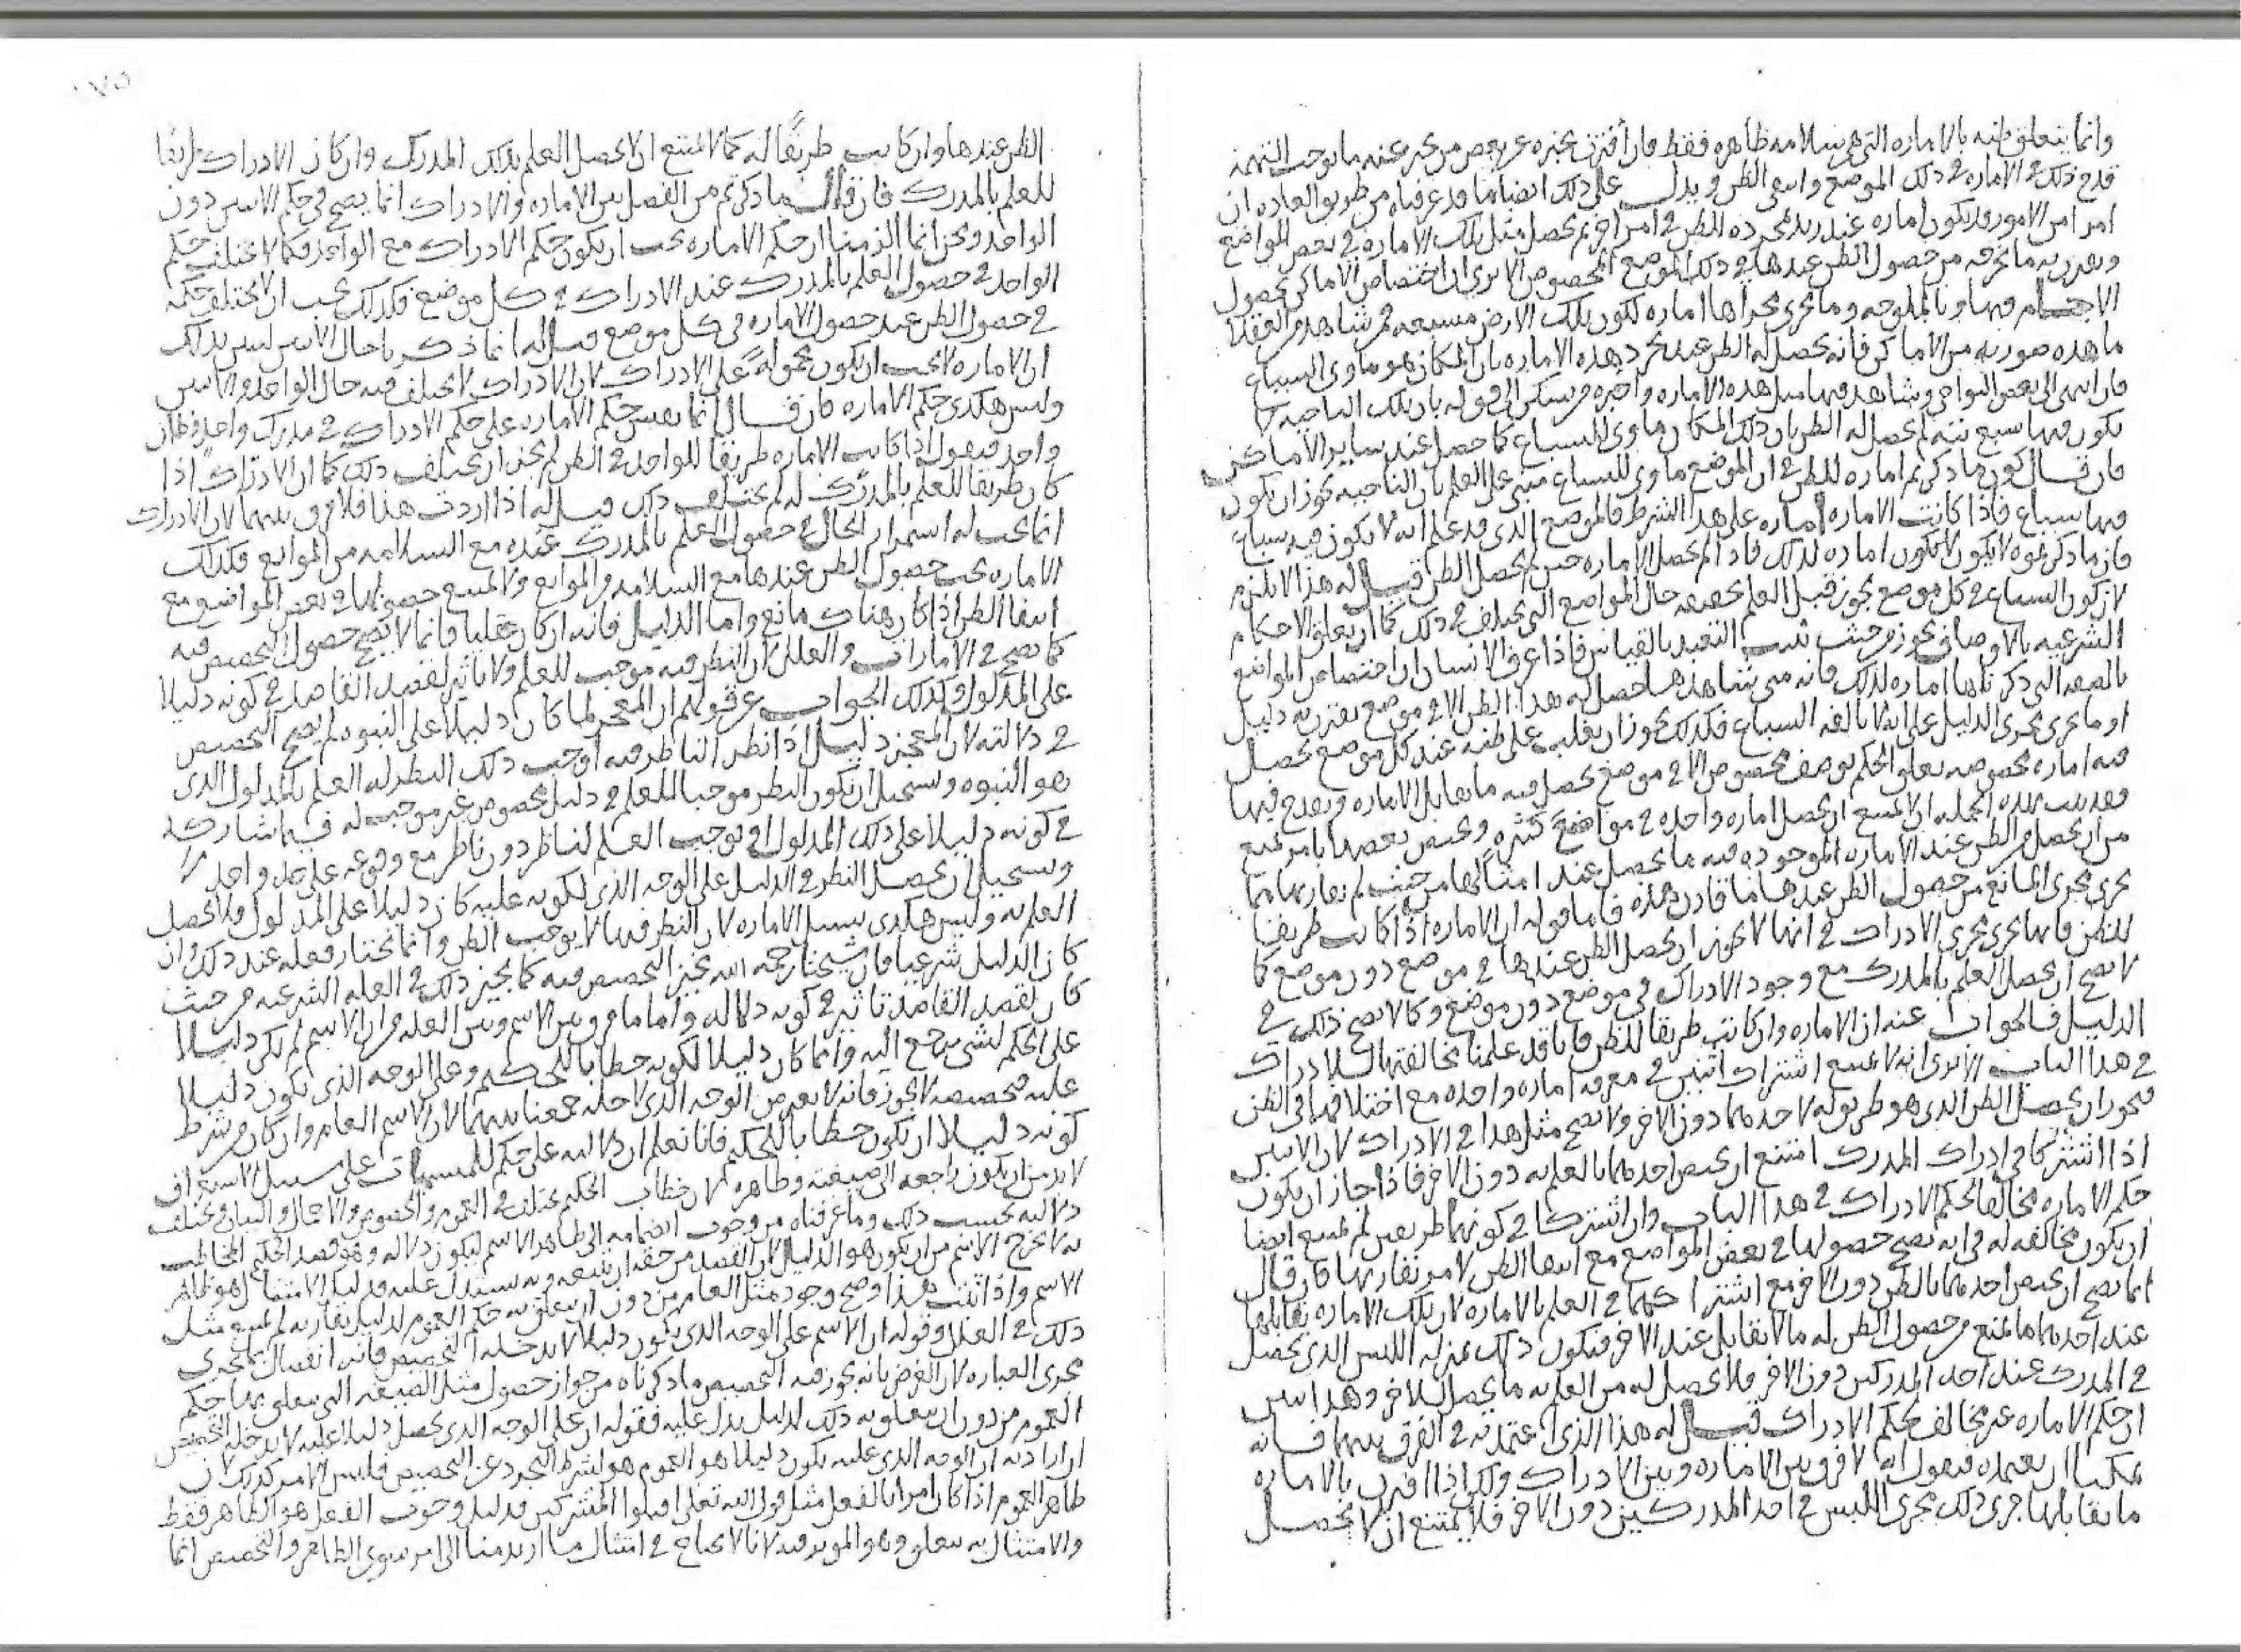 وانما يتعلق ظنه بالاماره التى هى سلامه ظاهره فقط فان أقترن بخبره عن بعض من يخبر عنه ما يوجب التهمه
قدح ذلك فى الاماره فى ذلك الموضع وانتفى الظن ويدل على ذلك ايضا ما قد عرفناه من طريق العاده ان
امرا من الامور قد يكون اماره عند زيد لمجرده للظن فى امر اخر ثم يحصل مثل تلك الاماره فى بعض المواضع
ويقترن به ما يخرجه من حصول الظن عندها فى ذلك الموضع المخصوص الا ترى ان اختصاص الاماكن بحصول
الاجسام فيها وبالملوحه وما يجرى مجراها اماره لكون تلك الارض مسبعه فمن شاهد من العقلا
ما هذه صورته من الاماكن فانه يحصل له الظن عند مجرد هذه الاماره بان المكان هو ماوى السباع
فان انتهى الى بعض النواحى وشاهد فيها مثل هذه الاماره واخبره من يسكن الى قوله بان تلك الناحيه لا
يكون فيها سبع بته لم يحصل له الظن بان ذلك المكان ماوى السباع كما حصل عند ساير الاماكن
فان قال كون ما ذكرتم اماره للظن فى ان الموضع ماوى للسباع مبنى على العلم بان الناحيه يجوز ان يكون
فيها سباع فاذا كانت الاماره اماره على هذا الشرط فالموضع الذى قد علم انه لا يكون فيه سباع
فان ما ذكرتموه لا يكون اماره لذلك فاذا لم تحصل الاماره حين لم يحصل الظن قيل له هذا لا يلزم
لان كون السباع فى كل موضع يجوز قبل العلم بحقيقه حال المواضع التى يختلف فى ذلك كما ان تعلق الاحكام
الشرعيه بالاوصاف يجوز من حيث ثبت التعبد بالقياس فاذا عرف الانسان ان اختصاص المواضع
بالصفه التى ذكرناها اماره لذلك فانه متى شاهدها حصل له هذا الظن الا فى موضع يقترن به دليل
او ما يجرى مجرى الدليل على انه لا يالفه السباع فكذلك يجوز ان يغلب على ظنه عند كل موضع يحصل
فيه اماره مخصوصه تعلق الحكم بوصف مخصوص الا فى موضع يحصل فيه ما يقابل الاماره ويقدح فيها
فقد ثبت بهذه الجمله انه لا يمتنع ان يحصل اماره واحده فى مواضع كثيره ويختص بعضها بامر يمنع
من ان يحصل من الظن عند الاماره الموجوده فيه ما يحصل عند امثالها من حيث لم يقارنها ما
يجرى مجرى المانع من حصول الظن عندها ما قارن هذه فاما قوله ان الاماره اذا كانت طريقا
للظن فانها تجرى مجرى الادراك فى انها لا يجوز ان يحصل الظن عندها فى موضع دون موضع كما
لا يصح ان يحصل العلم بالمدرك مع وجود الادراك فى موضع دون موضع وكما لا يصح ذلك فى
الدليل فالجواب عنه ان الاماره وان كانت طريقا للظن فانا قد علمنا مخالفتها للادراك
فى هذا الباب الا ترى انه لا يمتنع اشتراك اثنين فى معرفه اماره واحده مع اختلافهما فى الظن
فيجوز ان يحصل الظن الذى هو طريق له لاحدهما دون الاخر ولا يصح مثل هذا فى الادراك لان الاثنين
اذا اشتركا فى ادراك المدرك امتنع ان يختص احدهما بالعلم به دون الاخر فاذا جاز ان يكون
حكم الاماره مخالفا لحكم الادراك فى هذا الباب وان اشتركا فى كونهما طريقين لم يمتنع ايضا
ان يكون مخالفه له فى انه يصح حصولها فى بعض المواضع مع انتفا الظن لامر يقارنها فان قال
انما يصح ان يختص احدهما بالظن دون الاخر مع اشتراكهما فى العلم بالاماره لان تلك الاماره يقابلها
عند احدهما ما يمنع من حصول الظن له ما لا يقابل عند الاخر فيكون ذلك بمنزله اللبس الذى يحصل
فى المدرك عند احد المدركين دون الاخر فلا يحصل له من العلم به ما يحصل للاخر وهذا لا يبين
ان حكم الاماره غير مخالف لحكم الادراك قيل له هذا الذى اعتمدته فى الفرق بينهما فانه
يمكننا ان نعتمده فنقول انه لا فرق بين الاماره وبين الادراك ولكن اذا اقترن بالاماره
ما يقابلها جرى ذلك مجرى اللبس فى احد المدركين دون الاخر فلا يمتنع ان لا يحصل
الظن عندها وان كانت طريقا له كما لا يمتنع ان لا يحصل العلم بذلك المدرك وان كان الادراك طريقا
للعلم بالمدرك فان قال ما ذكرتم من الفصل بين الاماره والادراك انما يصح فى حكم الاثنين دون
الواحد ونحن انما الزمنا ان حكم الاماره يجب ان يكون حكم الادراك مع الواحد فكما لا يختلف حكم
الواحد فى حصول العلم بالمدرك عند الادراك فى كل موضع فكذلك يجب ان لا يختلف حكمه
فى حصول الظن عند حصول الاماره فى كل موضع قيل له انما ذكرنا حال الاثنين ليبين بذلك
ان الاماره لا يجب ان يكون محموله على الادراك لان الادراك لا يختلف فيه حال الواحد والاثنين
وليس هكذى حكم الاماره فان قال انما نعتبر حكم الاماره على حكم الادراك فى مدرك واحد وظان
واحد فنقول اذا كانت الاماره طريقا للواحد فى الظن لم يجز ان يختلف ذلك كما ان الادراك اذا
كان طريقا للعلم بالمدرك له لم يختلف ذلك قيل له اذا اردت هذا فلا فرق بينهما لان الادراك
انما يجب له استمرار الحال فى حصول العلم بالمدرك عنده مع السلامه من الموانع فكذلك
الاماره يجب حصول الظن عندها مع السلامه من الموانع ولا يمتنع حصولها فى بعض المواضع مع
انتفا الظن اذا كان هناك مانع واما الدليل فانه ان كان عقليا فانما لا يصح حصول التخصيص فيه
كما يصح فى الامارات والعلل لان النظر فيه موجب للعلم ولا تاثير لقصد القاصد فى كونه دليلا
على المدلول وكذلك الجواب عن قولهم ان المعجز لما كان دليلا على النبوه لم يصح التخصيص
فى دلالته لان المعجز دليل اذا نظر الناظر فيه اوجب ذلك النظر له العلم بالمدلول الذى
هو النبوه ويستحيل ان يكون النظر موجبا للعلم فى دليل مخصوص غير موجب له فيما شاركه
فى كونه دليلا على ذلك المدلول او يوجب العلم لناظر دون ناظر مع وقوعه على حد واحد
ويستحيل ان يحصل النظر فى الدليل على الوجه الذى لكونه عليه كان دليلا على المدلول ولا يحصل
العلم به وليس هكذى سبيل الاماره لان النظر فيها لا يوجب الظن وانما نختار فعله عند ذلك وان
كان الدليل شرعيا فان شيخنا رحمه الله يجيز التخصيص فيه كما يجيز ذلك فى العله الشرعيه من حيث
كان لقصد القاصد تاثير فى كونه دلاله واما ما فرق بين الاسم وبين العله من ان الاسم لم يكن دليلا
على الحكم لشى يرجع اليه وانما كان دليلا لكونه خطابا للحكيم وعلى الوجه الذى يكون دليلا
عليه تخصيصه لا يجوز فانه لا يعترض الوجه الذى لاجله جمعنا بينهما لان الاسم العام وان كان من شرط
كونه دليلا ان يكون خطابا للحكيم فانا نعلم ان دلالته على حكم المسميات على سبيل الاستغراق
لا بد من ان يكون راجعه الى صيغته وظاهره لان خطاب الحكيم يختلف فى العموم والخصوص والاجمال والبيان ويختلف
دلالته بحسب ذلك وما عرفناه من وجوب انضمامه الى ظاهر الاسم ليكون دلاله وهو قصد الحكيم المخاطب
به لا يخرج الاسم من ان يكون هو الدليل لان القصد من حقه ان يتبعه وبه يستدل عليه ودليل الامتثال هو ظاهر
الاسم واذا ثبت هذا وصح وجود مثل العام من دون ان يتعلق به حكم العموم لدليل يقارنه لم يمتنع مثل
ذلك فى العلل وقوله ان الاسم على الوجه الذى يكون دليلا لا يدخله التخصيص فانه انفصال بما يجرى
مجرى العباره لان الغرض بانه يجوز فيه التخصيص ما ذكرناه من جواز حصول مثل الصيغه التى يتعلق بها حكم
العموم من دون ان يتعلق به ذلك لدليل يدل عليه فقوله ان على الوجه الذى يحصل دليلا عليه لا يدخله التخصيص
ان اراد به ان الوجه الذى عليه يكون دليلا هو العموم هو بشرط التجرد عن التخصيص فليس الامر كذلك لان
ظاهر العموم اذا كان امرا بالفعل مثل قول الله تعالى اقتلوا المشركين فدليل وجوب الفعل هو الظاهر فقط
والامتثال به يتعلق وهو الموثر فيه لانا لا نحتاج فى امتثال ما اريد منا الى امر سوى الظاهر والتخصيص انما